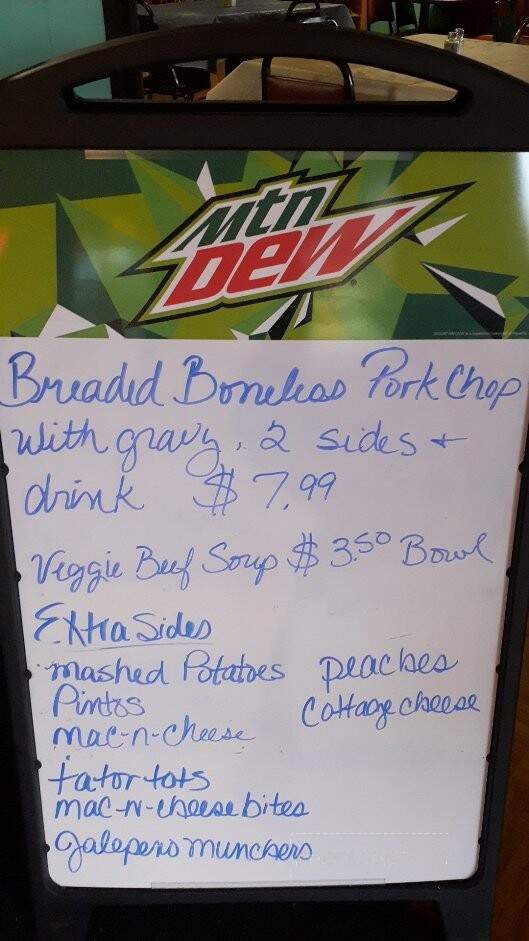 Mtn
Dew
Breaded Boneless Pork Chop
with gravy, 2 sides +
drink $7.99
Veggie Beef Soup $3.50 Bowl
Extra Sides
mashed Potatoes
Pintos
mac-n-cheese
tator tots
mac-n-cheese bites
Jalepeno munchers
peaches
Cottage cheese